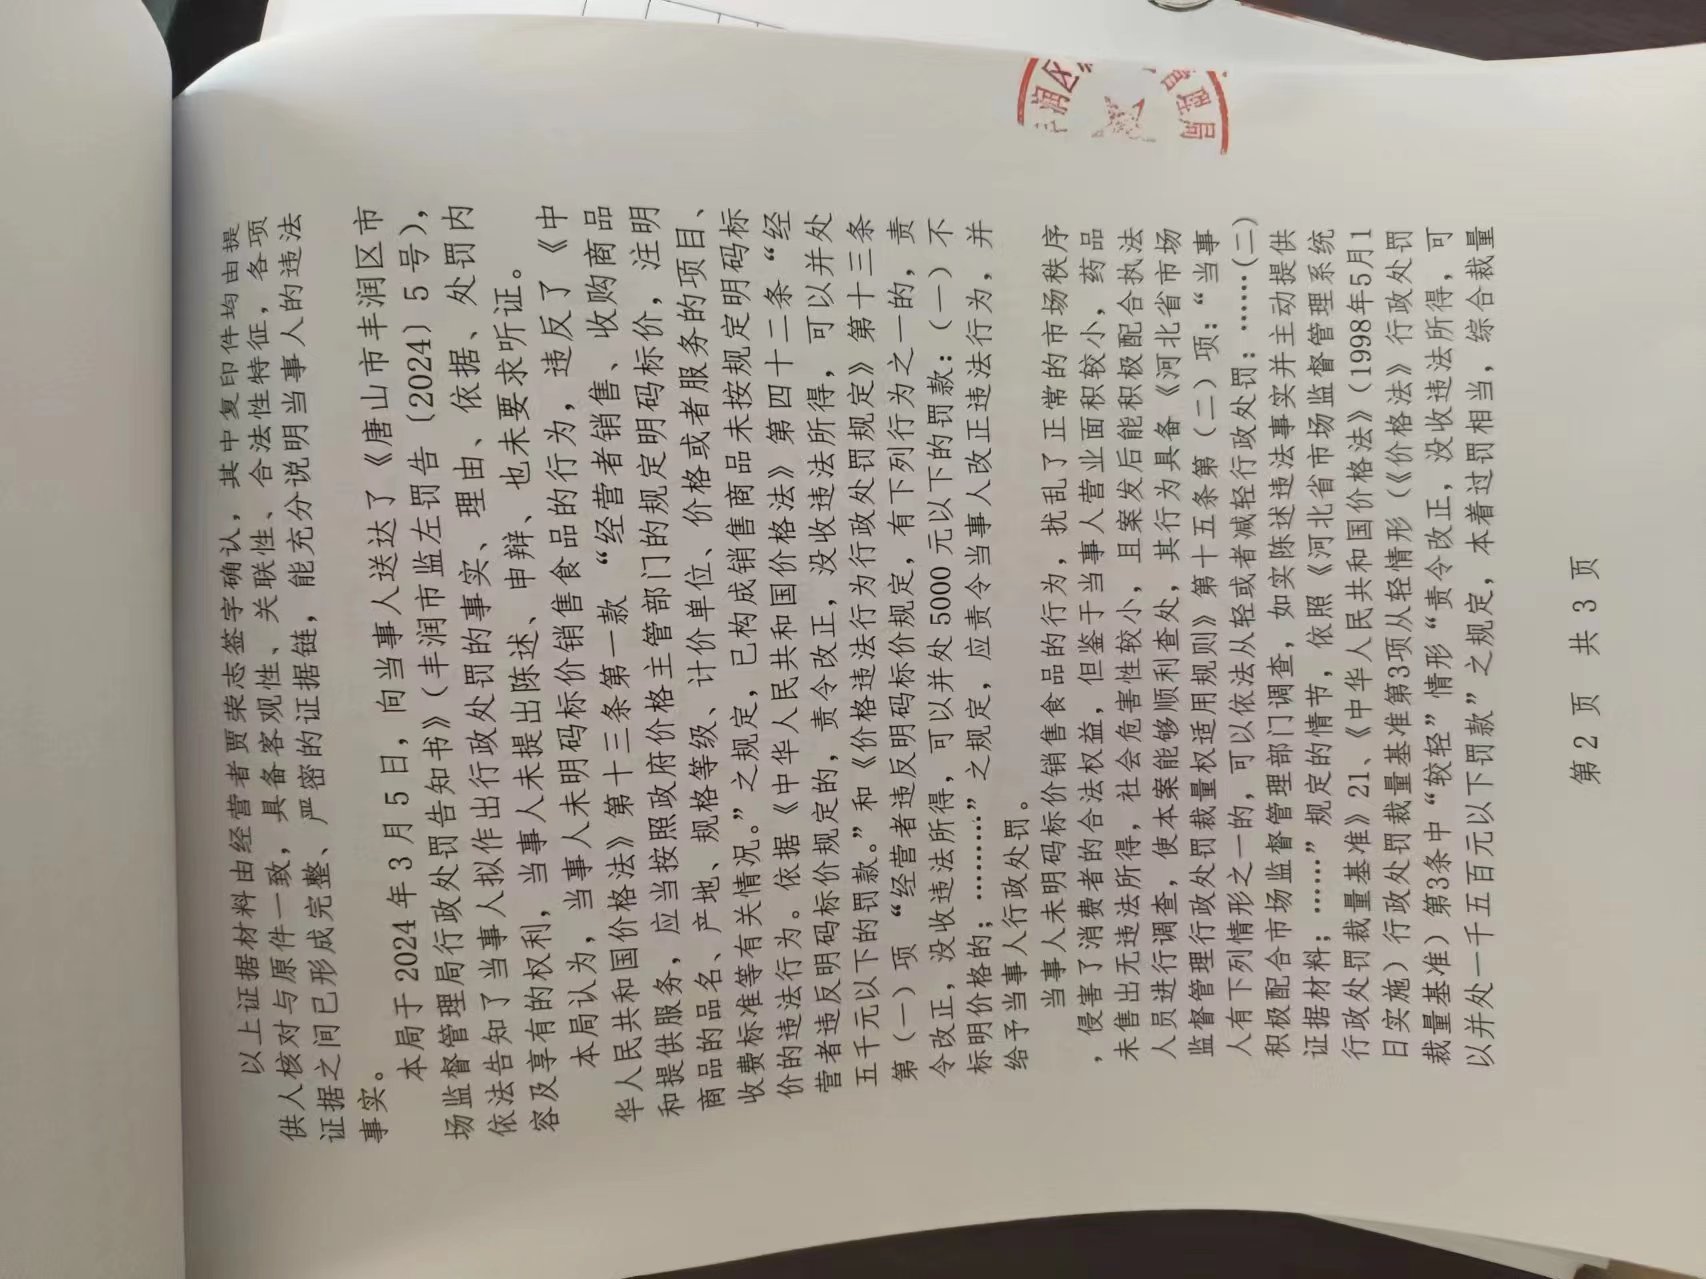 以上证据材料由经营者贾荣志签字确认，其中复印件均由提
供人核对与原件一致，具备客观性、关联性、合法性特征，各项
证据之间已形成完整、严密的证据链，能充分说明当事人的违法
事实。
本局于2024年3月5日，向当事人送达了《唐山市丰润区市
场监督管理局行政处罚告知书》（丰润市监左罚告〔2024〕5号），
依法告知了当事人拟作出行政处罚的事实、理由、依据、处罚内
容及享有的权利，当事人未提出陈述、申辩、也未要求听证。
本局认为，当事人未明码标价销售食品的行为，违反了《中
华人民共和国价格法》第十三条第一款“经营者销售、收购商品
和提供服务，应当按照政府价格主管部门的规定明码标价，注明
商品的品名、产地、规格等级、计价单位、价格或者服务的项目、
收费标准等有关情况。”之规定，已构成销售商品未按规定明码标
价的违法行为。依据《中华人民共和国价格法》第四十二条“经
营者违反明码标价规定的，责令改正，没收违法所得，可以并处
五千元以下的罚款。”和《价格违法行为行政处罚规定》第十三条
第（一）项“经营者违反明码标价规定，有下列行为之一的，责
令改正，没收违法所得，可以并处5000元以下的罚款：（一）不
标明价格的；………”之规定，应责令当事人改正违法行为，并
给予当事人行政处罚。
当事人未明码标价销售食品的行为，扰乱了正常的市场秩序
，侵害了消费者的合法权益，但鉴于当事人营业面积较小，药品
未售出无违法所得，社会危害性较小，且案发后能积极配合执法
人员进行调查，使本案能够顺利查处，其行为具备《河北省市场
监督管理行政处罚裁量权适用规则》第十五条第（二）项：“当事
人有下列情形之一的，可以依法从轻或者减轻行政处罚：……（二）
积极配合市场监督管理部门调查，如实陈述违法事实并主动提供
证据材料；……”规定的情节，依照《河北省市场监督管理系统
行政处罚裁量基准》21、《中华人民共和国价格法》（1998年5月1
日实施）行政处罚裁量基准第3项从轻情形（《价格法》行政处罚
裁量基准）第3条中“较轻”情形“责令改正，没收违法所得，可
以并处一千五百元以下罚款”之规定，本着过罚相当，综合裁量
第 2 页 共 3 页
润区
局